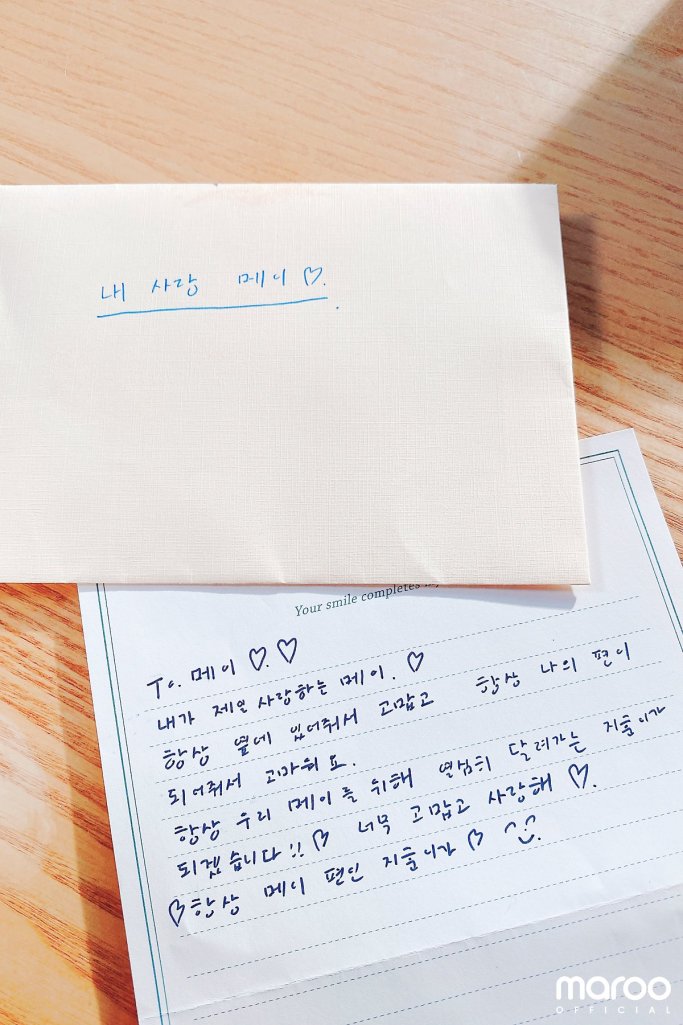 내 사랑 메이♡.
Your smile completes
To. 메이 ♡.♡
내가 제일 사랑하는 메이. ♡
항상 옆에 있어줘서 고맙고 항상 나의 편이
되어줘서 고마워요.
항상 우리 메이를 위해 열심히 달려가는 지훌이가
되겠습니다!! ♡ 너무 고맙고 사랑해 ♡.
♡항상 메이 편인 지훌이가 ♡ ^‿^.
maroo
OFFICIAL